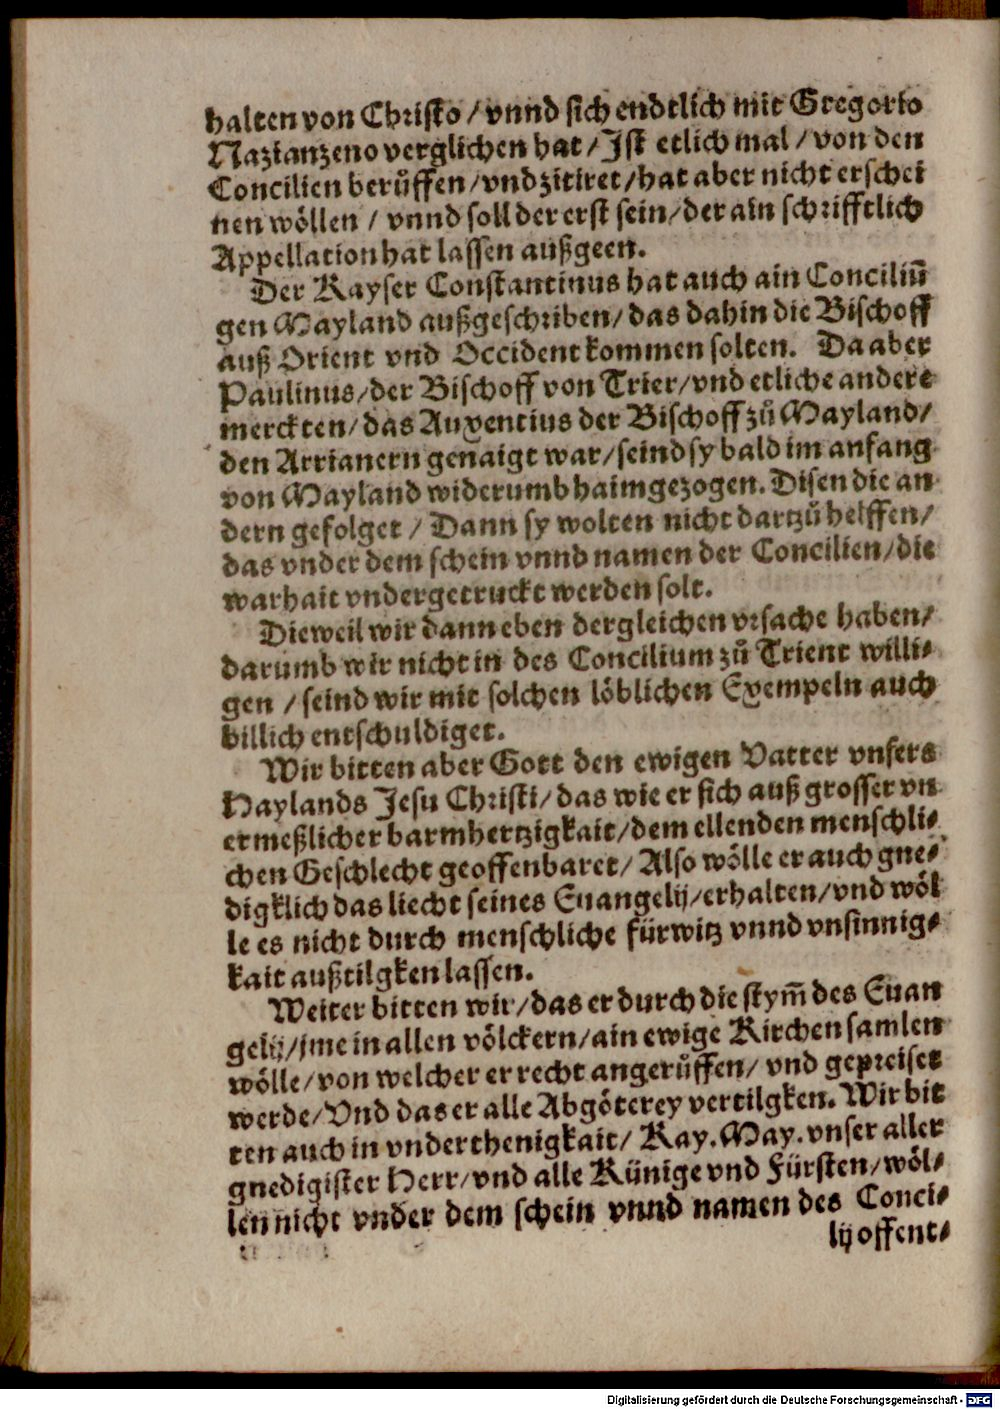 halten von Christo / vnnd sich endtlich mit Gregorio
Nazianzeno verglichen hat / Ist etlich mal / von den
Concilien berůffen / vnd zitiret / hat aber nicht erschei
nen wöllen / vnnd soll der erst sein / der ain schrifftlich
Appellation hat lassen außgeen.
Der Kayser Constantinus hat auch ain Conciliū
gen Mayland außgeschriben / das dahin die Bischoff
auß Orient vnd Occident kommen solten. Da aber
Paulinus / der Bischoff von Trier / vnd etliche andere
merckten / das Auxentius der Bischoff zů Mayland /
den Arrianern genaigt war / seind sy bald im anfang
von Mayland widerumb haimgezogen. Disen die an
dern gefolget / Dann sy wolten nicht dartzů helffen /
das vnder dem schein vnnd namen der Concilien / die
warhait vndergetruckt werden solt.
Dieweil wir dann eben dergleichen vrsache haben /
darumb wir nicht in des Concilium zů Trient willi⸗
gen / seind wir mit solchen löblichen Exempeln auch
billich entschuldiget.
Wir bitten aber Gott den ewigen Vatter vnsers
Haylands Jesu Christi / das wie er sich auß grosser vn
ermeßlicher barmhertzigkait / dem ellenden menschli⸗
chen Geschlecht geoffenbaret / Also wölle er auch gne⸗
digklich das liecht seines Euangelij / erhalten / vnd wöl
le es nicht durch menschliche fürwitz vnnd vnsinnig⸗
kait außtilgken lassen.
Weiter bitten wir / das er durch die stym̄ des Euan
gelij / jme in allen völckern / ain ewige Kirchen samlen
wölle / von welcher er recht angerůffen / vnd gepreiset
werde / Vnd das er alle Abgöterey vertilgken. Wir bit
ten auch in vnderthenigkait / Kay. May. vnser aller
gnedigister Herr / vnd alle Künige vnd Fürsten / wöl⸗
len nicht vnder dem schein vnnd namen des Conci⸗
lij offent⸗
Digitalisierung gefördert durch die Deutsche Forschungsgemeinschaft - DFG